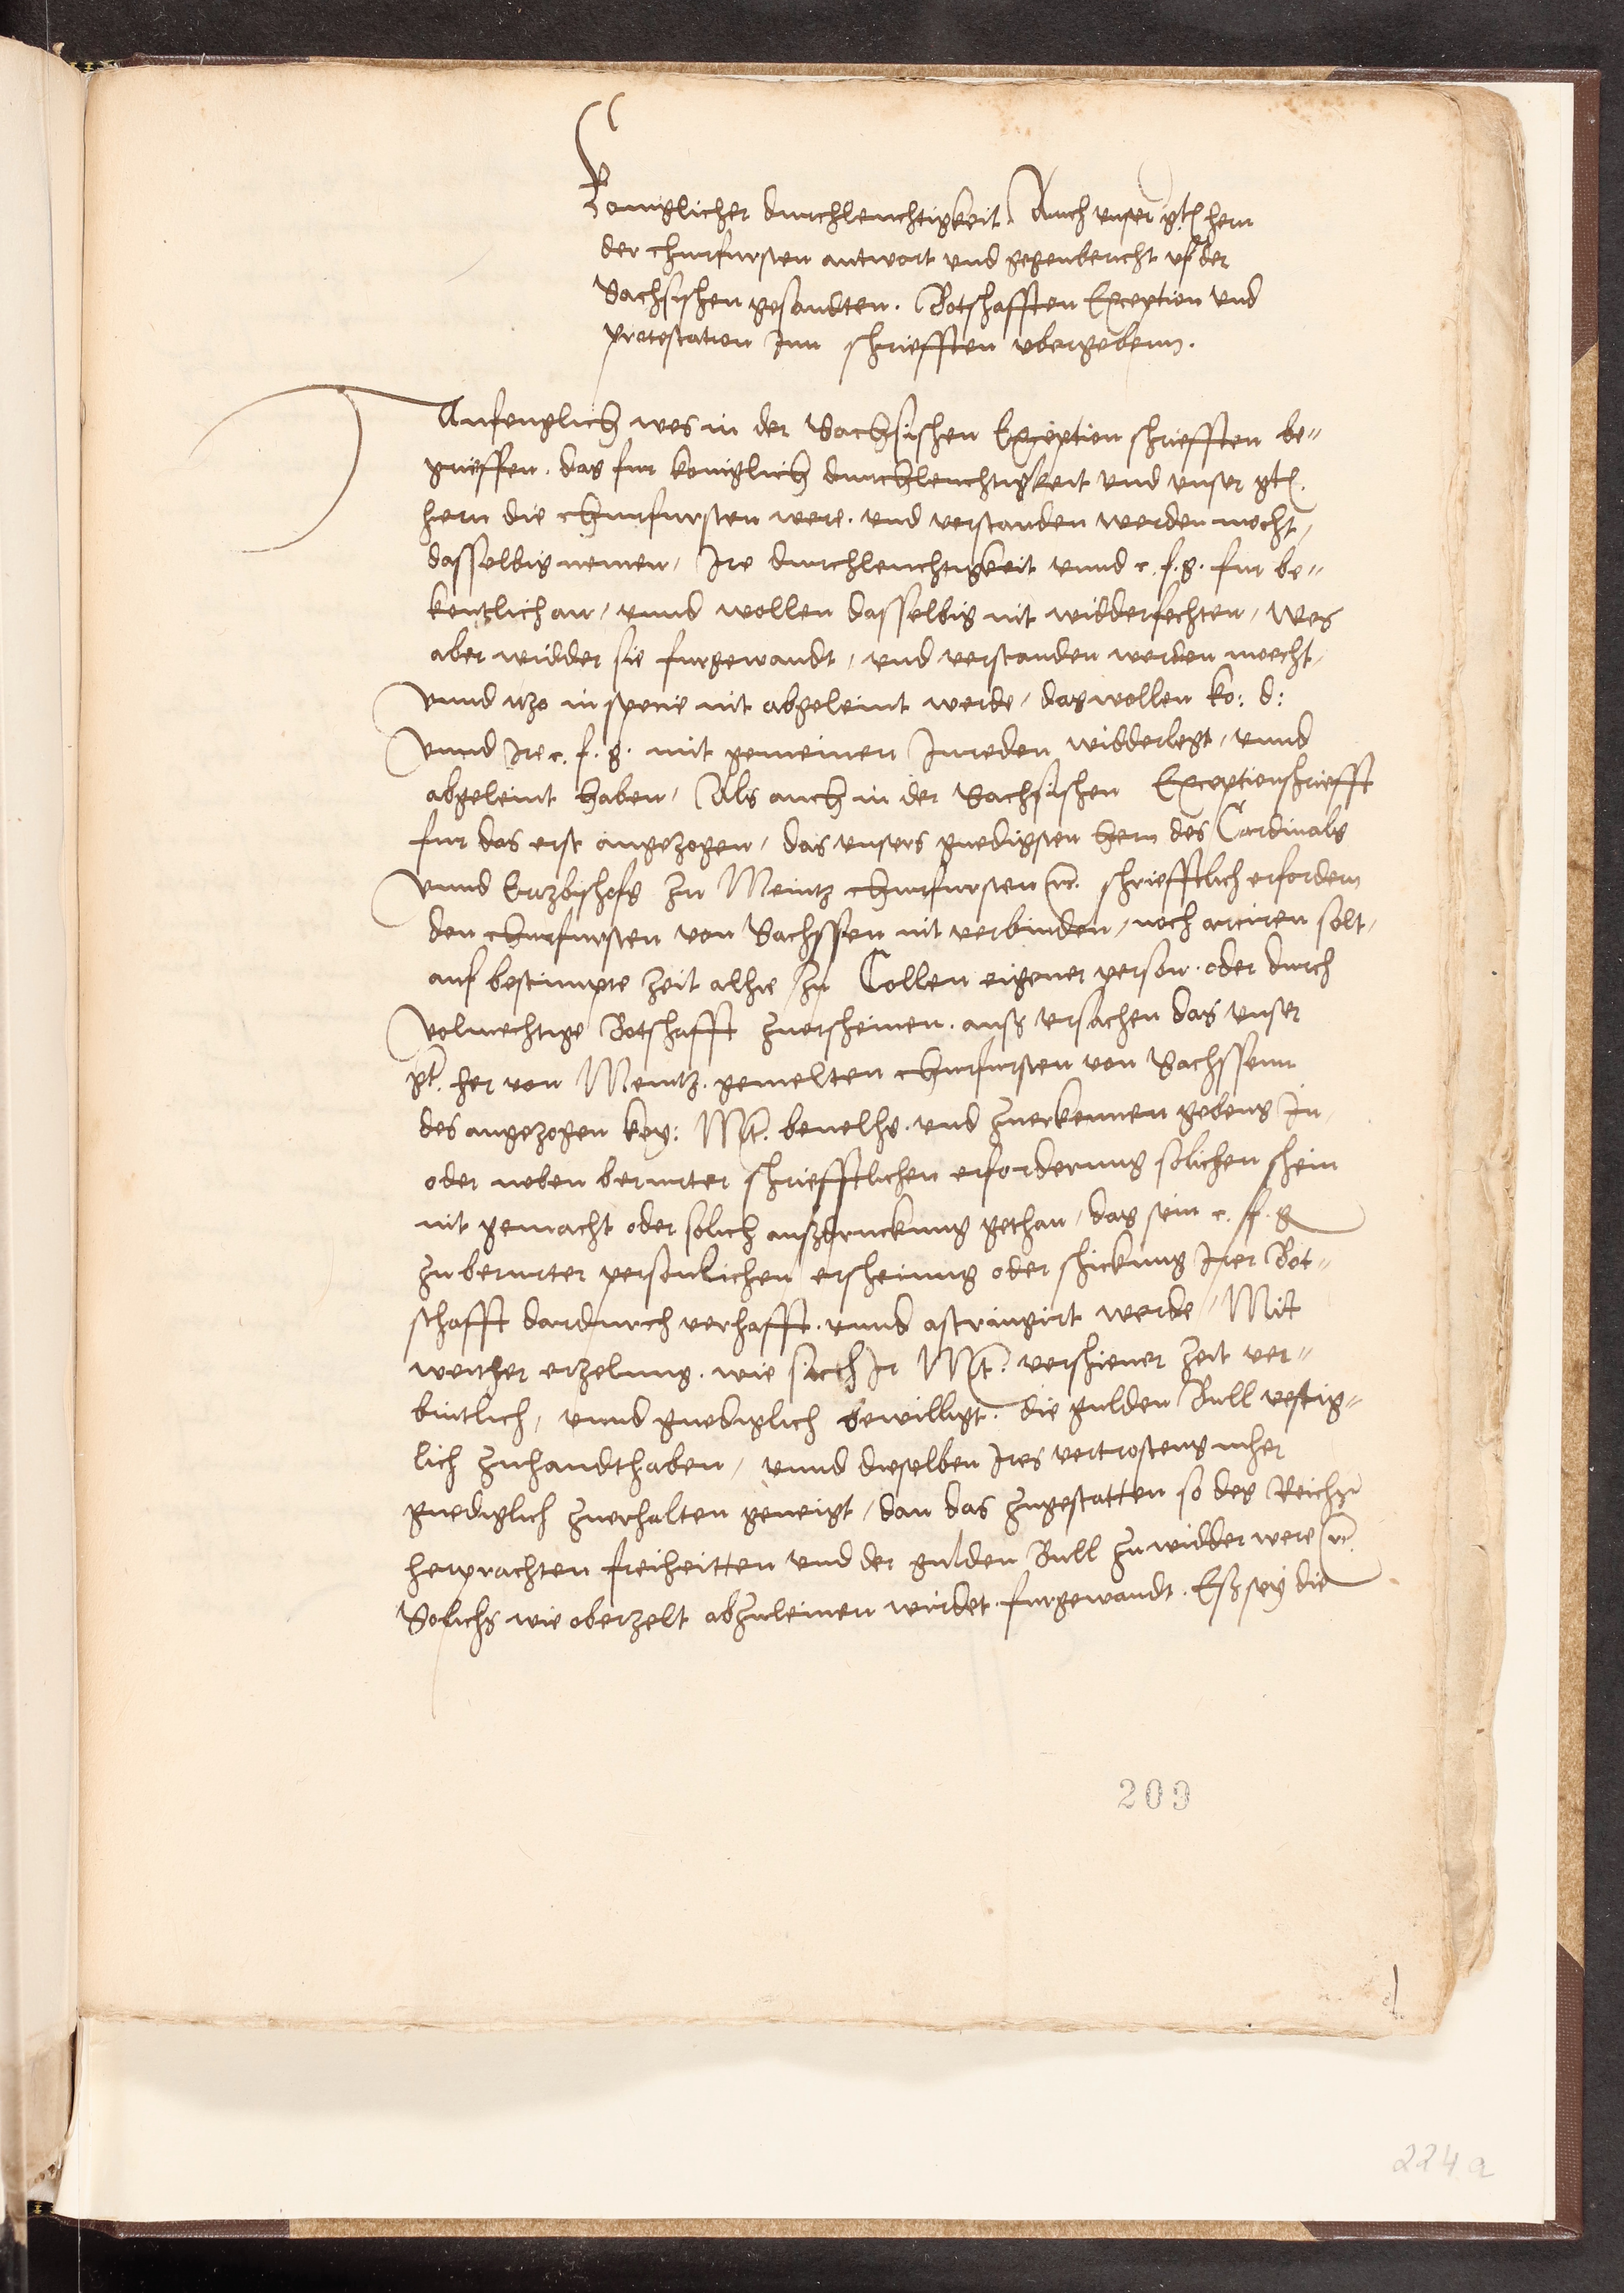 Koniglicher durchleuchtigkeit. Auch unser gt. hern
der churfursten antwort und gegenbericht uf der
Sachsischen gesandten. Botschafften Exception und
protestation Inn schriefften ubergebenn.
Anfenglich wes in der Sachsischen Exception schriefften be„
grieffen. das fur koniglich durchleuchtigkeit und unser gt.
hern die churfursten were. und verstanden werden mocht,
dasselbig nemen, Ire durchleuchtigkeit unnd c. f. g. fur be„
kentlich an, unnd wollen dasselbig nit widderfechten, Wes
aber widder sie furgewandt, und verstanden werden moecht,
unnd itzo in specie nit abgeleint werde, das wollen ko: d:
unnd Ire c. f. g. mit gemeinen Inreden widderlegt, unnd
abgeleint haben, Als auch in der Sachsischen Exceptionschriefft
fur das erst angezogen, das unsers gnedigsten hern des Cardinals
unnd Ertzbischofs zu Meintz churfursten etc. schriefftlich erfordern
den churfursten von Sachssen nit verbinden, noch arctiren solt,
auf bestimpte zeit alhie zu Collen eigener person. oder durch
volmechtige Botschafft zuerscheinen. auß ursachen das unser
gt. her von Meintz. gemelten churfursten von Sachssenn
des angezogen key: Mt. bevelhs. und zuerkennen gebens In
oder neben berurter schriefftlichen erforderung solichen schein
nit gemacht oder solich außdruckung gethan, das sein c. f. g
zu berurter personlichen erscheinung oder schickung Irer Bot„
schafft dardurch verhafft. unnd astringirt werde, Mit
weither erzelung. wie sich Ir Mt. verschiener zeit ver„
bintlich, unnd gnediglich bewilligt. die gulden Bull vestig„
lich zuhandthaben, unnd dieselben Ires vertrostens mher
gnediglich zuerhalten geneigt, dan das zugestatten so des Reichs
herprachten freiheitten und der gulden Bull zu widder were etc.
Solichs wie oberzelt abzuleinen wirdet. furgewandt. Eß sey die
209
224 a